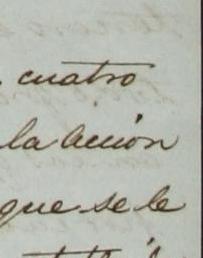 cuatro
la acción
que se le